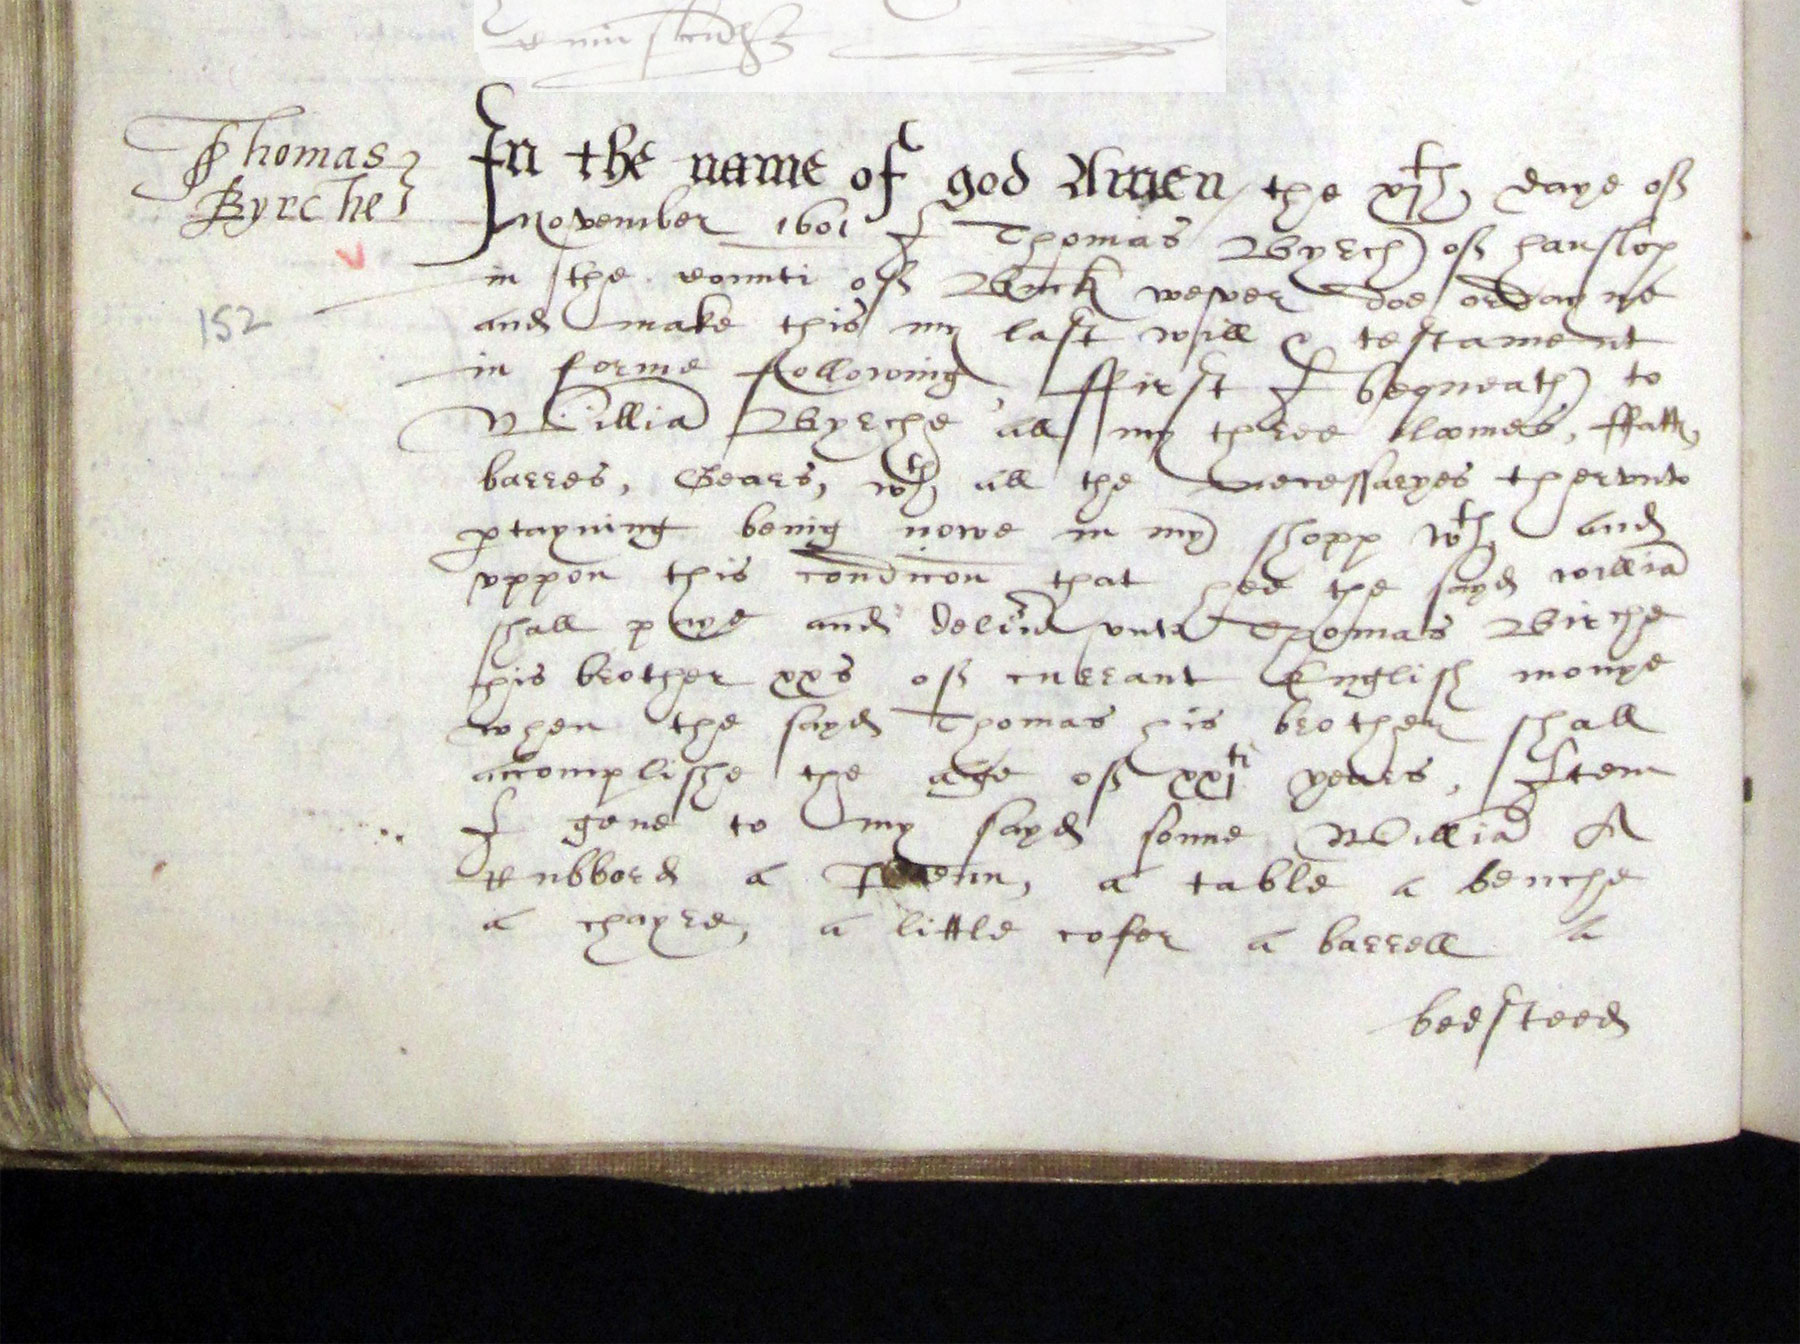 Thomas
Byrche
152
In the name of god Amen, the xjth daye off
November 1601 I Thomas Byrch off hanslop
in the counti off Buck wever doe ordayne
and make this my last will & testament
in forme following, ffirst I bequeath to
Williā Byrche all my three loomes, ffatt,
barres, Gears, wth all the necessaryes thervnto
ptayning being nowe in my shopp wth and
vppon this condicon that hee the sayd williā
shall paye and deliu vnto Thomas Birche
his brother xxs off currant English monye
when the sayd Thomas his brother shall
accomplishe the age off xxjti years, Item
I geue to my sayd sonne Williā A
Cubbord a, a table a benche
a chayre, a little cofer a barrell a
bedsteed